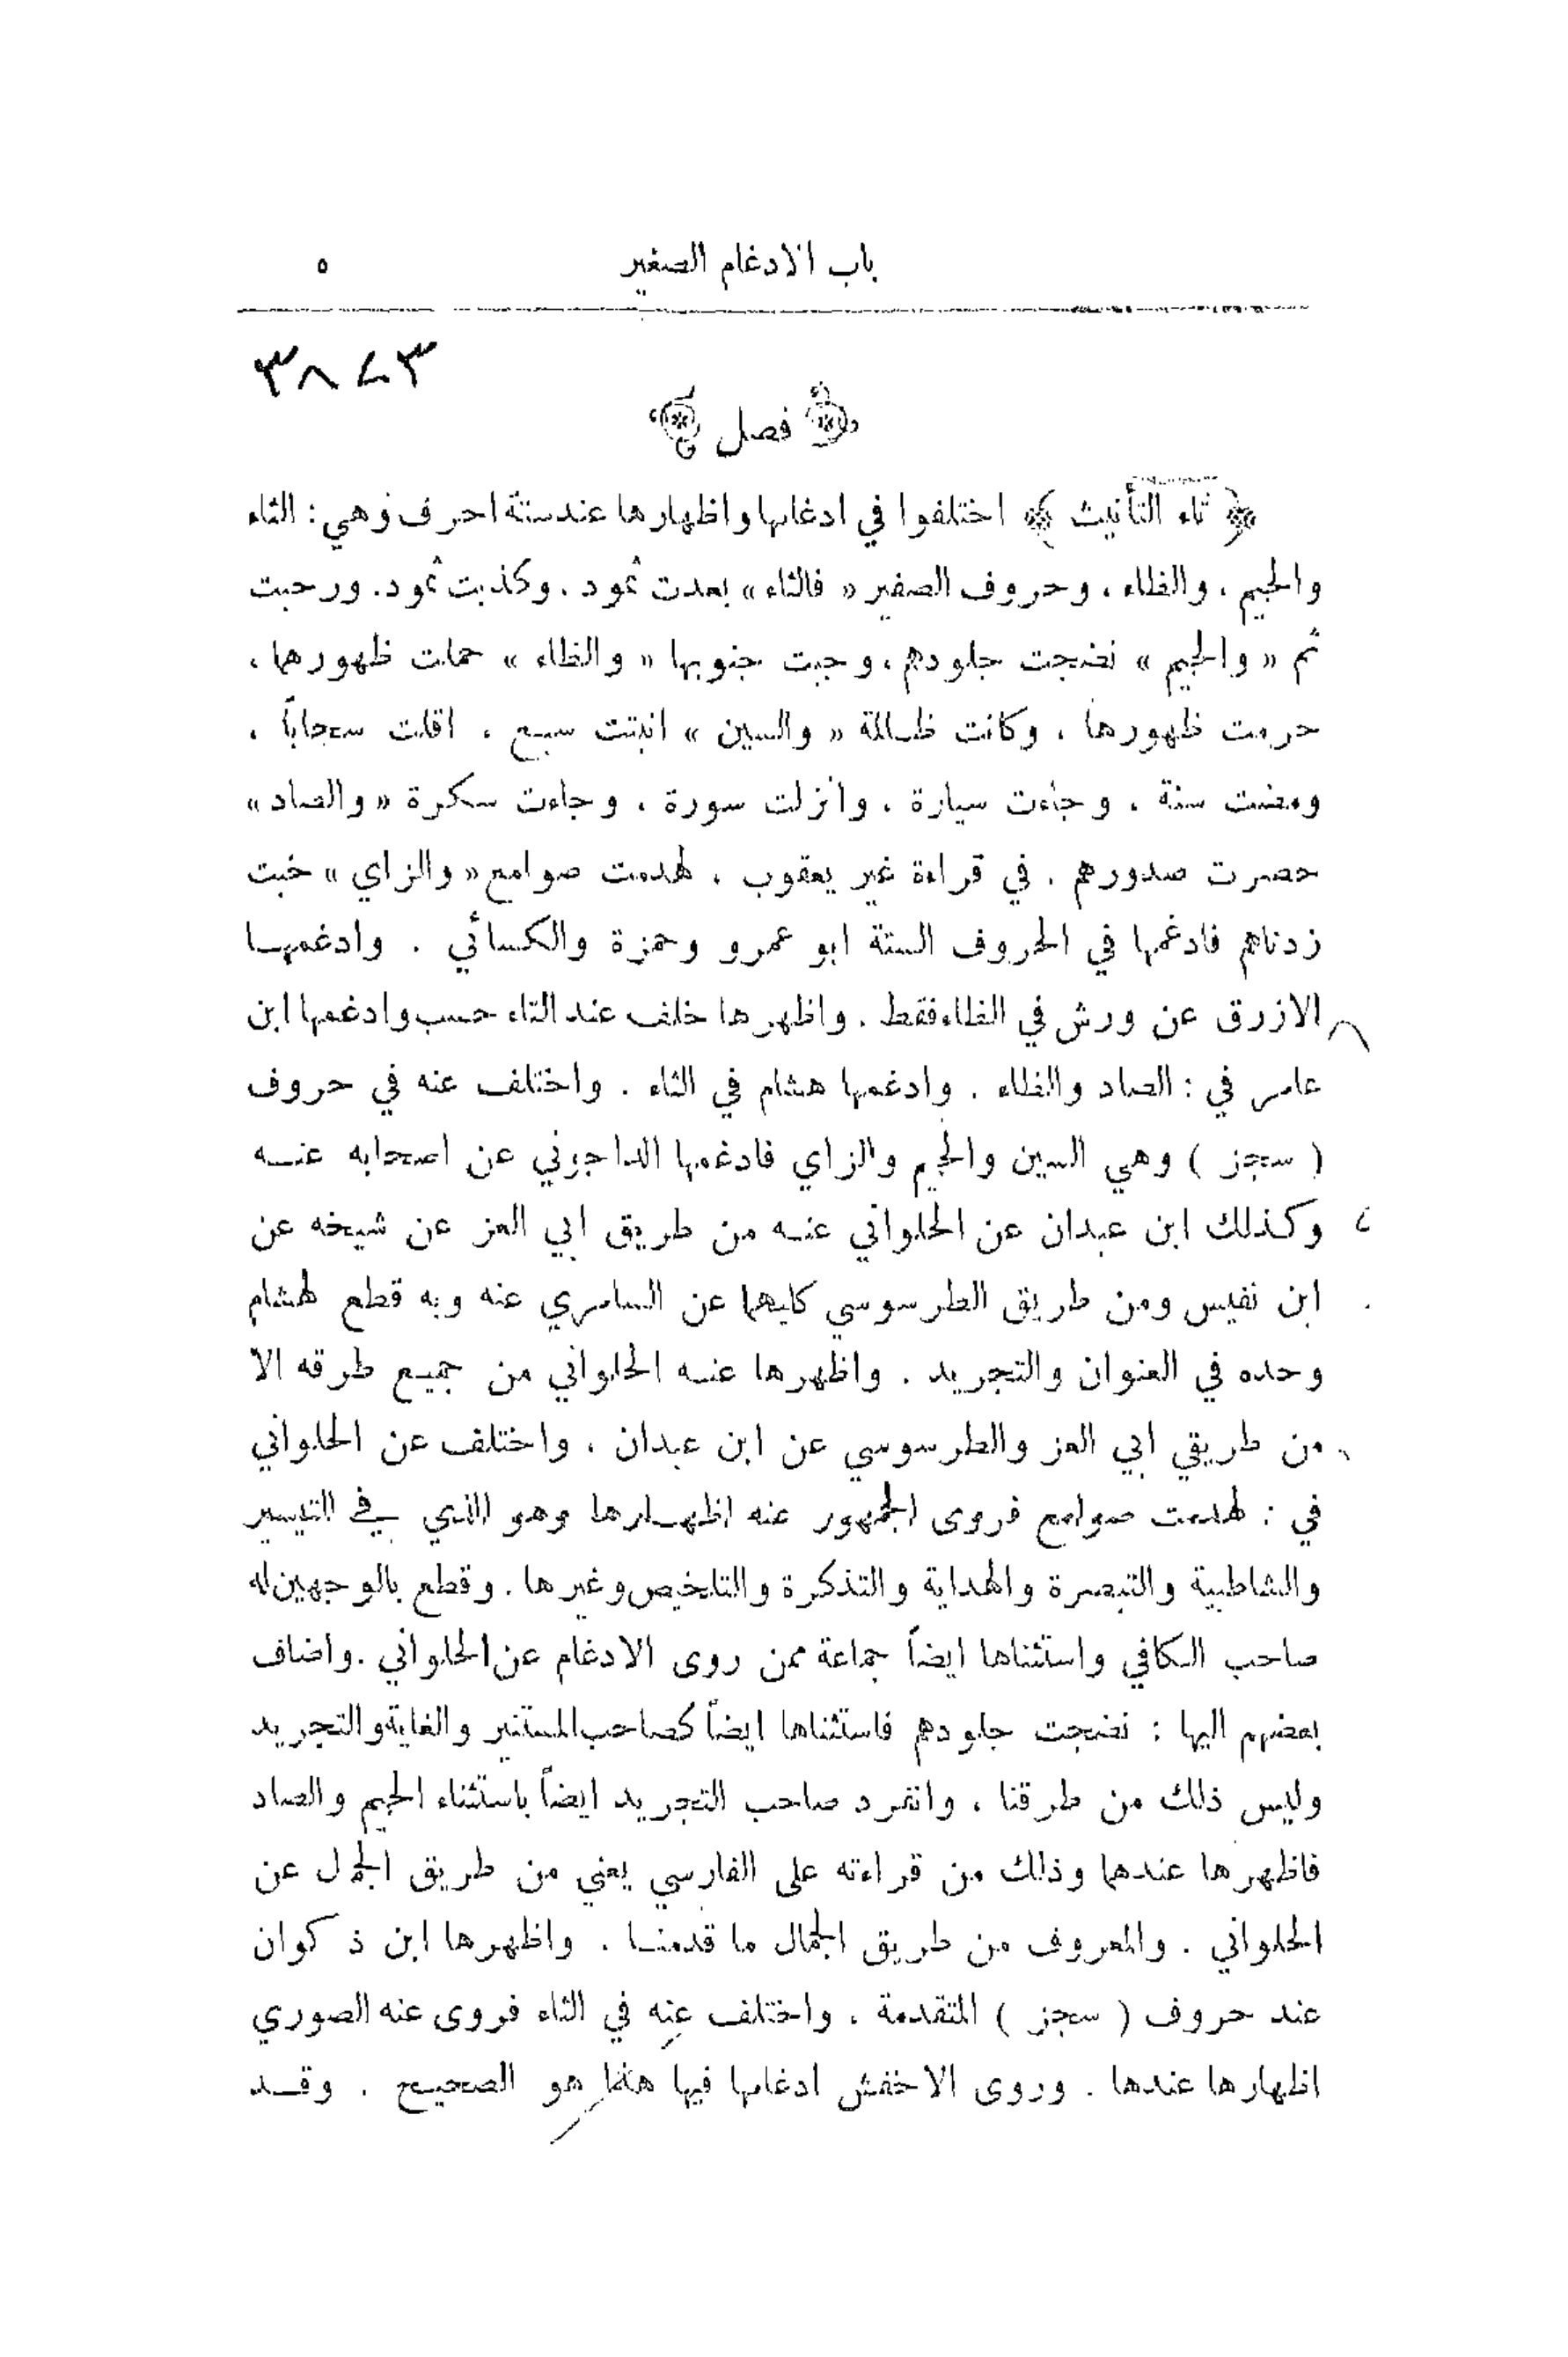 باب الادغام الصغير ٥
٣٨٧٣
فصل
﴿ تاء التأنيث ﴾ اختلفوا في ادغامها واظهارها عند ستة احرف وهي : الثاء
والجيم ، والظاء ، وحروف الصفير « فالثاء » بعدت ثمود ، وكذبت ثمود . ورحبت
ثم « والجيم » نضجت جلودهم ، وجبت جنوبها « والظاء » حملت ظهورهما ،
حرمت ظهورها ، وكانت ظالمة « والسين » انبتت سبع ، اقلت سحاباً ،
ومضت سنة ، وجاءت سيارة ، وانزلت سورة ، وجاءت سكرة « والصاد »
حصرت صدورهم . في قراءة غير يعقوب ، لهدمت صوامع « والزاي » خبت
زدناهم فادغمها في الحروف الستة ابو عمرو وحمزة والكسائي . وادغمهـا
الازرق عن ورش في الظاء فقط . واظهرها خلف عند الثاء حسب وادغمها ابن
عامر في : الصاد والظاء . وادغمها هشام في الثاء . واختلف عنه في حروف
( سجز ) وهي السين والجيم والزاي فادغمها الداجوني عن اصحابه عنـه
وكذلك ابن عبدان عن الحلواني عنـه من طريق ابي العز عن شيخه عن
ابن نفيس ومن طريق الطرسوسي كليهما عن السامري عنه وبه قطع لهشام
وحده في العنوان والتجريد . واظهرها عنـه الحلواني من جميـع طرقه الا
من طريقي ابي العز والطرسوسي عن ابن عبدان ، واختلف عن الحلواني
في : لهدمت صوامع فروى الجمهور عنه اظهـارها وهو الذي في التيسير
والشاطبية والتبصرة والهداية والتذكرة والتلخيص وغيرها . وقطع بالوجهين له
صاحب الكافي واستثناها ايضاً جماعة ممن روى الادغام عن الحلواني . واضاف
بعضهم اليها : نضجت جلودهم فاستثناها ايضاً كصاحب المستنير والغاية والتجريد
وليس ذلك من طرقنا ، وانفرد صاحب التجريد ايضاً باستثناء الجيم والصاد
فاظهرها عندهما وذلك من قراءته على الفارسي يعني من طريق الجمال عن
الحلواني . والمعروف من طريق الجمال ما قدمنـا . واظهرها ابن ذكوان
عند حروف ( سجز ) المتقدمة ، واختلف عنه في الثاء فروى عنه الصوري
اظهارها عندها . وروى الاخفش ادغامها فيها هذا هو الصحيح . وقـد